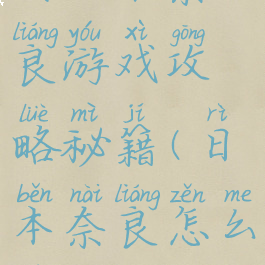 liáng yóu xì gōng
良游戏攻
lüè mì jí rì
略秘籍(日
běn nài liáng zěn me
本奈良怎么